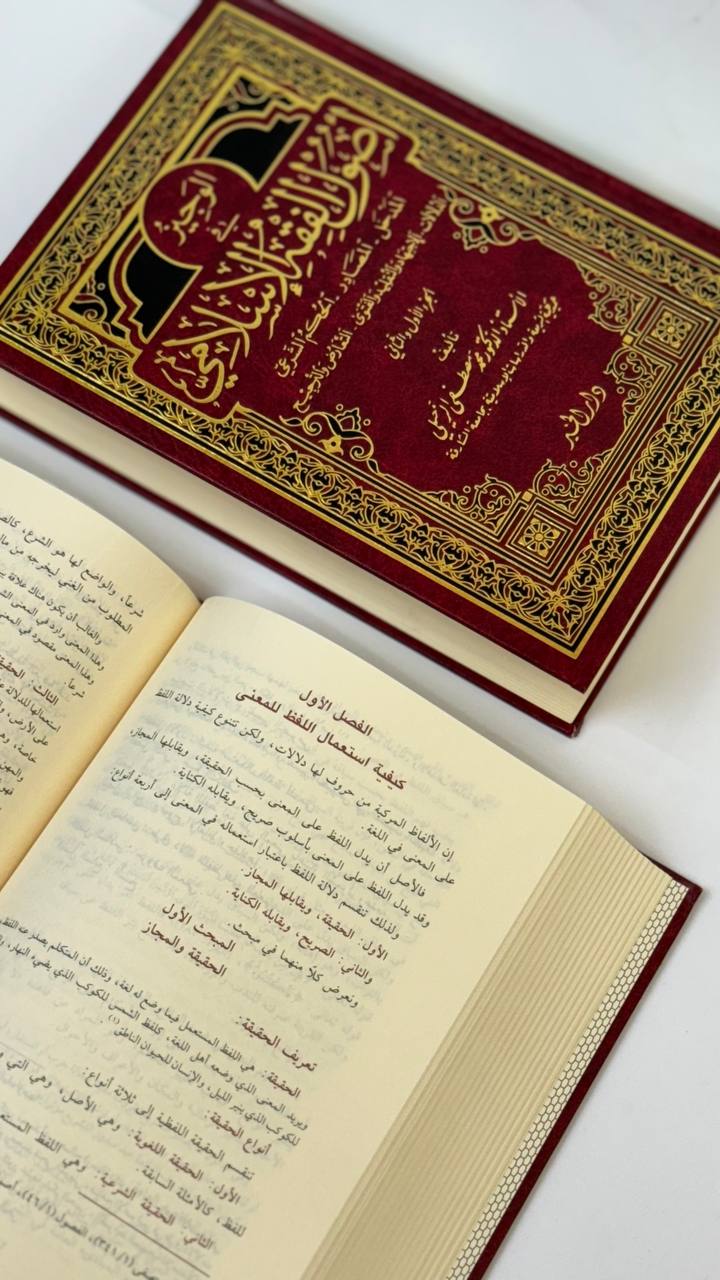 الوجيز
في
أصول الفقه الإسلامي
المدخل - المصادر - الحكم الشرعي
الجزء الأول والثاني
تأليف
الأستاذ الدكتور محمد مصطفى الزحيلي
دار الخير
شرعاً، والواضع لها هو الشرع،
المطلوب من الغني ليخرجه من
والغالب أن يكون هناك علاقة
وهذا المعنى وارد في المعنى
وهذا المعنى مقصود في المعنى
شرعاً.
الثالث: الحقيقة
استعمالها للدلالة
على الأرض،
خاصة،
الفصل الأول
كيفية استعمال اللفظ للمعنى
إن الألفاظ المركبة من حروف لها دلالات، ولكن تتنوع كيفية دلالة اللفظ
على المعنى في اللغة.
فالأصل أن يدل اللفظ على المعنى بحسب الحقيقة، ويقابلها المجاز،
وقد يدل اللفظ على المعنى بأسلوب صريح، ويقابله الكناية.
ولذلك تنقسم دلالة اللفظ باعتبار استعماله في المعنى إلى أربعة أنواع:
الأول: الحقيقة، ويقابلها المجاز.
والثاني: الصريح، ويقابله الكناية.
ونعرض كلاً منهما في مبحث.
المبحث الأول
الحقيقة والمجاز
تعريف الحقيقة:
الحقيقة: هي اللفظ المستعمل فيما وضع له لغة، وذلك أن المتكلم يصدر عنه اللفظ،
ويريد المعنى الذي وضعه أهل اللغة، كلفظ الشمس للكوكب الذي يضيء النهار،
للكوكب الذي ينير الليل، والإنسان للحيوان الناطق(١).
أنواع الحقيقة:
تنقسم الحقيقة اللفظية إلى ثلاثة أنواع:
الأول: الحقيقة اللغوية: وهي الأصل، وهي التي
للفظ، كالأمثلة السابقة.
الثاني: الحقيقة الشرعية: وهي اللفظ